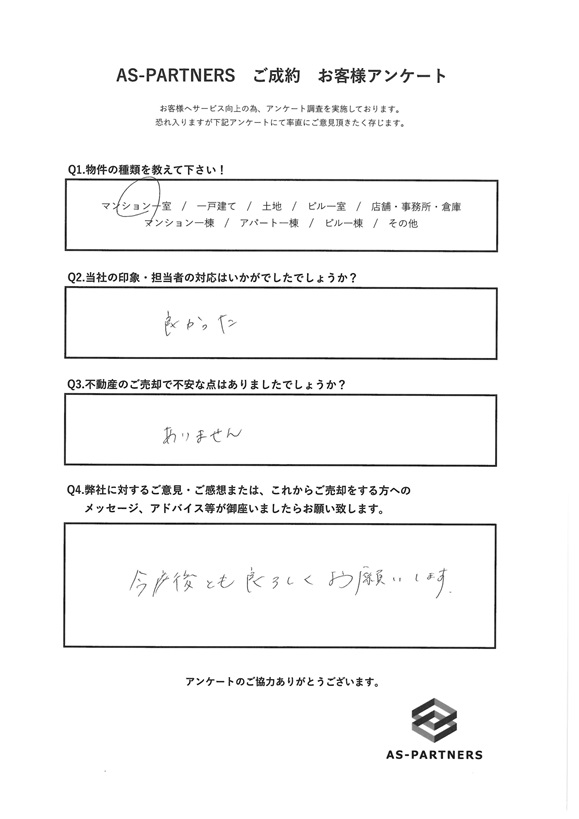 AS-PARTNERS ご成約 お客様アンケート
お客様へサービス向上の為、アンケート調査を実施しております。
恐れ入りますが下記アンケートにて率直にご意見頂きたく存じます。
Q1.物件の種類を教えて下さい！
マンション一室 / 一戸建て / 土地 / ビル一室 / 店舗・事務所・倉庫
マンション一棟 / アパート一棟 / ビル一棟 / その他
Q2.当社の印象・担当者の対応はいかがでしたでしょうか？
良かった
Q3.不動産のご売却で不安な点はありましたでしょうか？
ありません
Q4.弊社に対するご意見・ご感想または、これからご売却をする方への
メッセージ、アドバイス等が御座いましたらお願い致します。
今後とも良ろしくお願いします.
アンケートのご協力ありがとうございます。
AS-PARTNERS